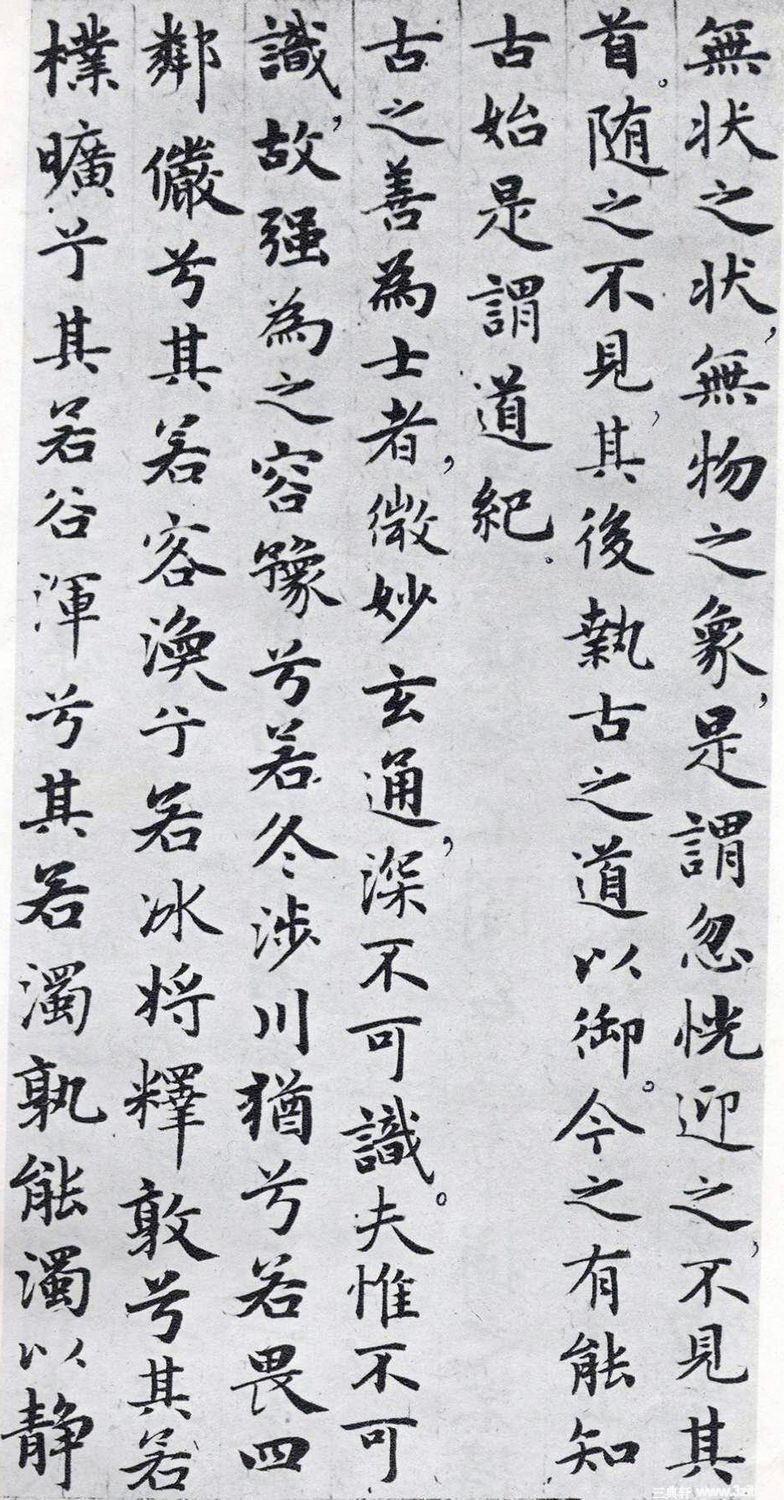 無状之状，無物之象，是謂忽恍迎之，不見其
首。随之不見，其後執古之道以御。今之有能知
古始是謂道紀。
古之善為士者，微妙玄通，深不可識。夫惟不可
識，故强為之容豫兮若冬涉川猶兮若畏四
鄰儼兮其若客渙兮若冰将釋敦兮其若
樸曠兮其若谷渾兮其若濁孰能濁以静